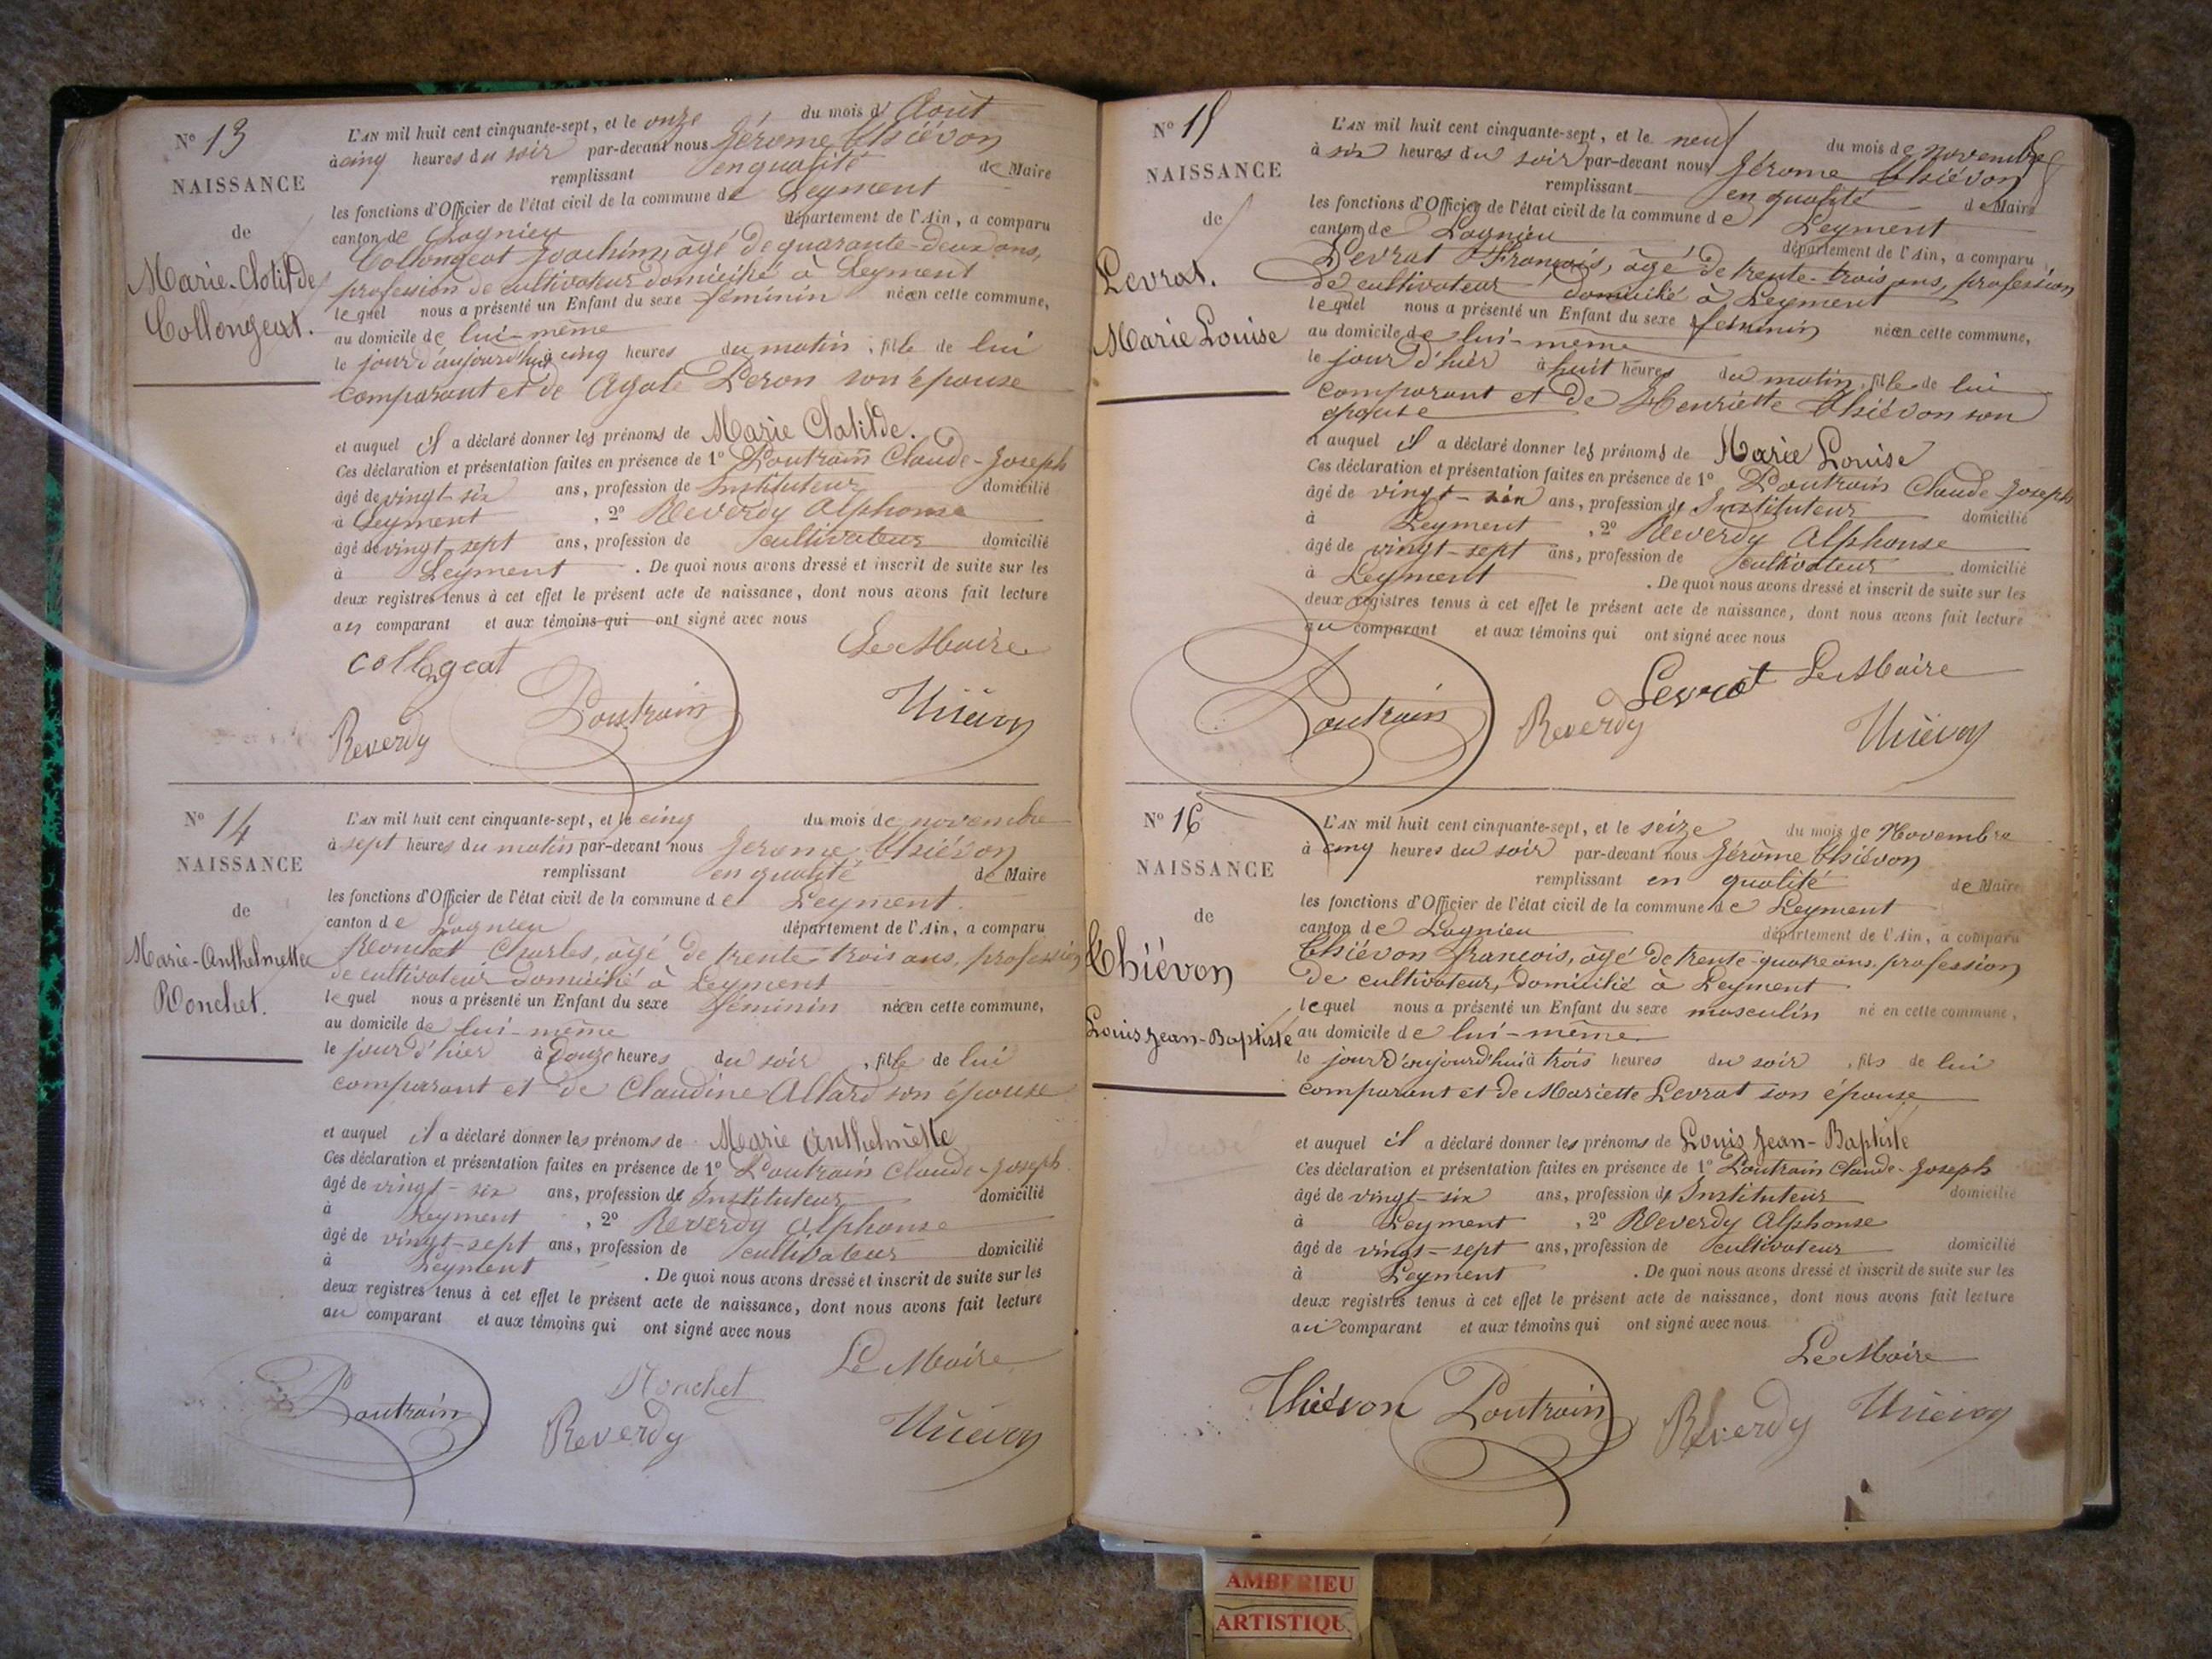 N° 13
NAISSANCE
de
Marie-Clotilde
Collongeat.
L'AN mil huit cent cinquante-sept, et le onze du mois d'Août
à cinq heures du soir par-devant nous Jérome Thiévon
remplissant en qualité de Maire
les fonctions d'Officier de l'état civil de la commune de Leyment
canton de Lagnieu département de l'Ain, a comparu
Collongeat Joachim, âgé de quarante-deux ans,
profession de cultivateur domicilié à Leyment
lequel nous a présenté un Enfant du sexe féminin née en cette commune,
au domicile de lui-même
le jour d'aujourd'hui à cinq heures du matin, fille de lui
comparant et de Agate Peron son épouse
et auquel il a déclaré donner les prénoms de Marie Clotilde.
Ces déclaration et présentation faites en présence de 1° Poutrain Claude-Joseph
âgé de vingt-six ans, profession de Instituteur domicilié
à Leyment, 2° Reverdy Alphonse
âgé de vingt-sept ans, profession de cultivateur domicilié
à Leyment. De quoi nous avons dressé et inscrit de suite sur les
deux registres tenus à cet effet le présent acte de naissance, dont nous avons fait lecture
au comparant et aux témoins qui ont signé avec nous
Le Maire
collongeat
Poutrain
Thiévon
Reverdy
N° 14
NAISSANCE
de
Marie-Anthelmette
Ronchet.
L'AN mil huit cent cinquante-sept, et le cinq du mois de novembre
à sept heures du matin par-devant nous Jerome Thiévon
remplissant en qualité de Maire
les fonctions d'Officier de l'état civil de la commune de Leyment.
canton de Lagnieu département de l'Ain, a comparu
Ronchet Charles, âgé de trente-trois ans, profession
de cultivateur domicilié à Leyment
lequel nous a présenté un Enfant du sexe féminin née en cette commune,
au domicile de lui-même
le jour d'hier à douze heures du soir, fille de lui
comparant et de Claudine Allard son épouse
et auquel il a déclaré donner les prénoms de Marie Anthelmette
Ces déclaration et présentation faites en présence de 1° Poutrain Claude-Joseph
âgé de vingt-six ans, profession de Instituteur domicilié
à Leyment, 2° Reverdy Alphonse
âgé de vingt-sept ans, profession de cultivateur domicilié
à Leyment. De quoi nous avons dressé et inscrit de suite sur les
deux registres tenus à cet effet le présent acte de naissance, dont nous avons fait lecture
au comparant et aux témoins qui ont signé avec nous
Le Maire
Ronchet
Poutrain
Reverdy
Thiévon
N° 15
NAISSANCE
de
Levrat.
Marie Louise
L'AN mil huit cent cinquante-sept, et le neuf du mois de novembre
à six heures du soir par-devant nous Jérome Thiévon
remplissant en qualité de Maire
les fonctions d'Officier de l'état civil de la commune de Leyment
canton de Lagnieu département de l'Ain, a comparu
Levrat François, âgé de trente-trois ans, profession
de cultivateur domicilié à Leyment
lequel nous a présenté un Enfant du sexe féminin née en cette commune,
au domicile de lui-même
le jour d'hier à huit heures du matin, fille de lui
comparant et de Henriette Thiévon son
épouse
et auquel il a déclaré donner les prénoms de Marie Louise
Ces déclaration et présentation faites en présence de 1° Poutrain Claude-Joseph
âgé de vingt-six ans, profession de Instituteur domicilié
à Leyment, 2° Reverdy Alphonse
âgé de vingt-sept ans, profession de cultivateur domicilié
à Leyment. De quoi nous avons dressé et inscrit de suite sur les
deux registres tenus à cet effet le présent acte de naissance, dont nous avons fait lecture
au comparant et aux témoins qui ont signé avec nous
Levrat Le Maire
Poutrain
Reverdy
Thiévon
N° 16
NAISSANCE
de
Thiévon
Louis Jean-Baptiste
L'AN mil huit cent cinquante-sept, et le seize du mois de Novembre
à cinq heures du soir par-devant nous Jérôme Thiévon
remplissant en qualité de Maire
les fonctions d'Officier de l'état civil de la commune de Leyment
canton de Lagnieu département de l'Ain, a comparu
Thiévon françois, âgé de trente-quatre ans, profession
de cultivateur, domicilié à Leyment
lequel nous a présenté un Enfant du sexe masculin né en cette commune,
au domicile de lui-même
le jour d'aujourd'hui à trois heures du soir, fils de lui
comparant et de Mariette Levrat son épouse
et auquel il a déclaré donner les prénoms de Louis Jean-Baptiste
Ces déclaration et présentation faites en présence de 1° Poutrain Claude-Joseph
âgé de vingt-six ans, profession de Instituteur domicilié
à Leyment, 2° Reverdy Alphonse
âgé de vingt-sept ans, profession de cultivateur domicilié
à Leyment. De quoi nous avons dressé et inscrit de suite sur les
deux registres tenus à cet effet le présent acte de naissance, dont nous avons fait lecture
au comparant et aux témoins qui ont signé avec nous
Le Maire
Thiévon Poutrain Reverdy Thiévon
AMBERIEU
ARTISTIQU